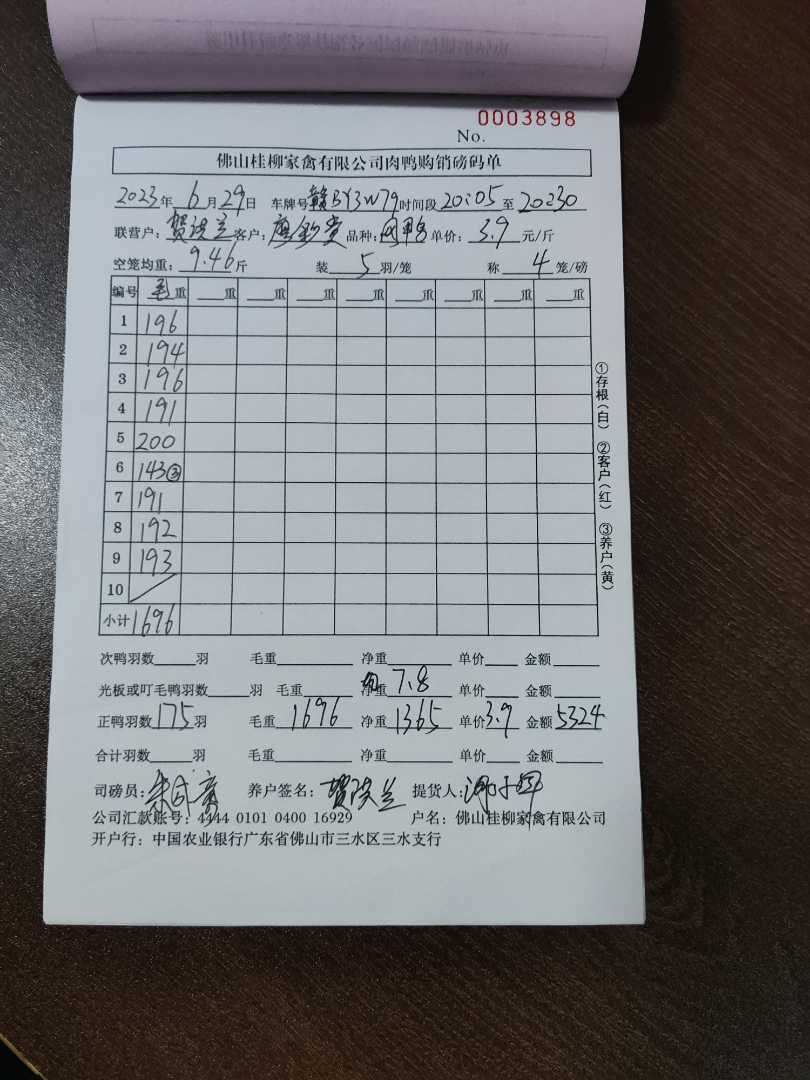 0003898
No.
佛山桂柳家禽有限公司肉鸭购销磅码单
2023年 6月29日 车牌号赣BY3W79时间段20:05至20:30
联营户:贺洪兰客户: 品种: 单价: 3.9元/斤
空笼均重: 9.46斤 装 5 羽/笼 称 4 笼/磅
编号 毛重 重 重 重 重 重 重 重 重
1 196
2 194
3 196
4 191
5 200
6 143③
7 191
8 192
9 193
10
小计 1696
①存根(白) ②客户(红) ③养户(黄)
次鸭羽数 羽 毛重 净重 单价 金额
光板或叮毛鸭羽数 羽 毛重 净重 7.8 单价 金额
正鸭羽数175羽 毛重 1696 净重 1365 单价3.9 金额5324
合计羽数 羽 毛重 净重 单价 金额
司磅员: 养户签名:贺洪兰 提货人:
公司汇款账号: 4444 0101 0400 16929 户名: 佛山桂柳家禽有限公司
开户行: 中国农业银行广东省佛山市三水区三水支行